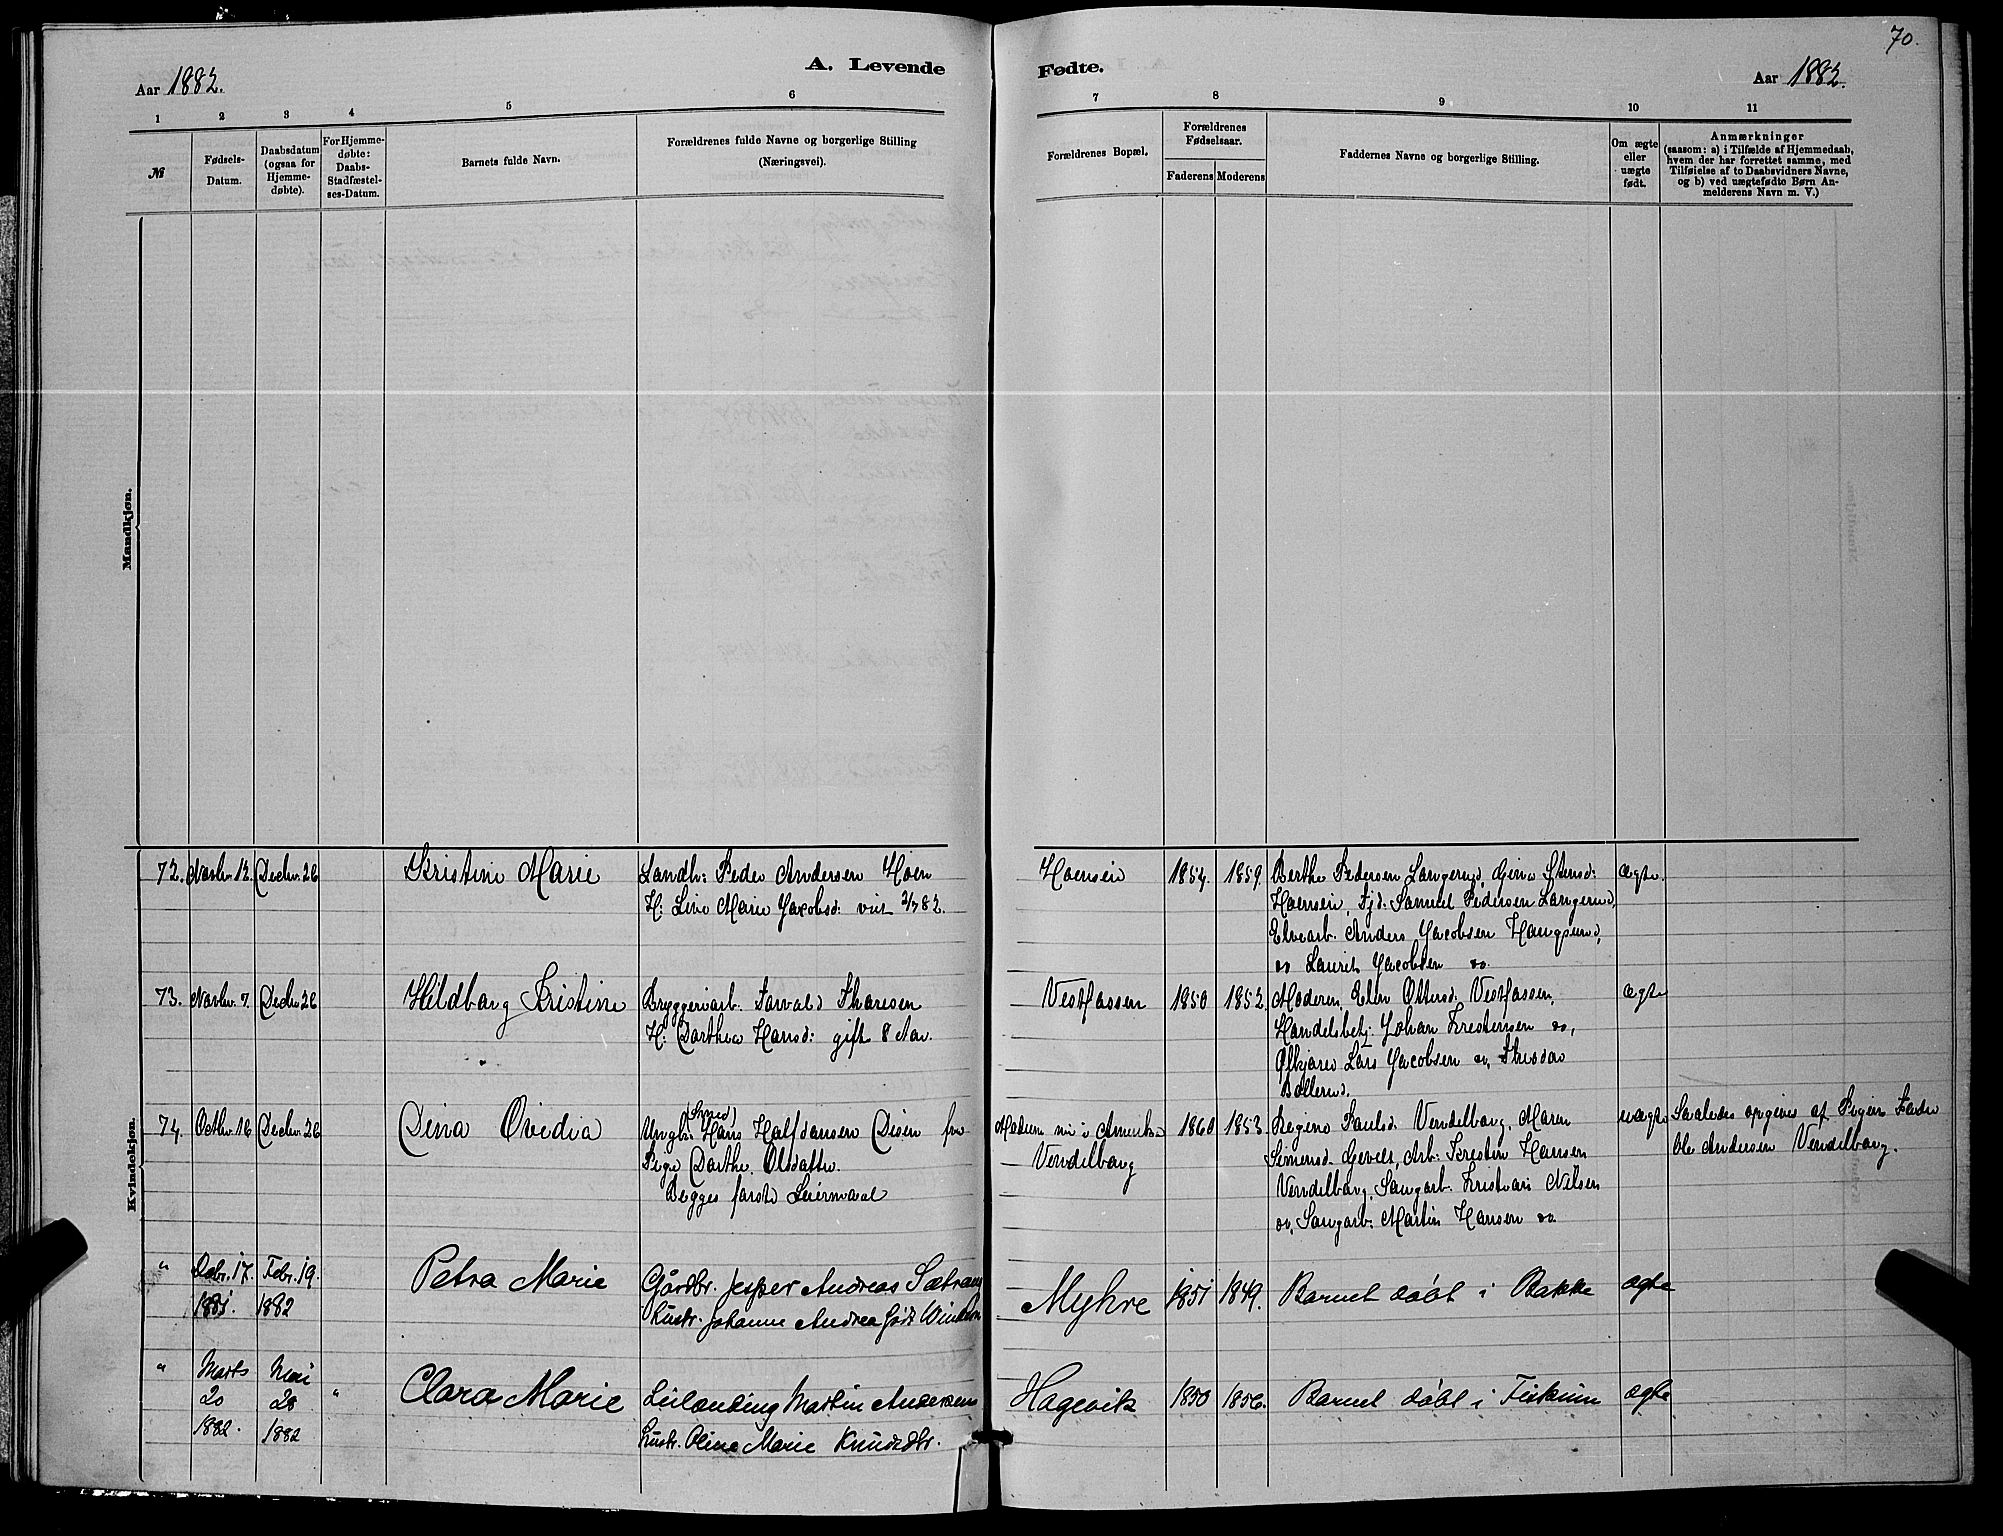 70.
A. Levende Fødte.
Aar 1882.
Aar 1882.
1 2 3 4 5 6 7 8 9 10 11
№
Fødsels-
Datum.
Daabsdatum
(ogsaa for
Hjemme-
døbte).
For Hjemme-
døbte:
Daabs-
Stadfæstel-
ses-Datum.
Barnets fulde Navn.
Forældrenes fulde Navne og borgerlige Stilling
(Næringsvei).
Forældrenes Bopæl.
Forældrenes
Fødselsaar.
Faderens Moderens
Faddernes Navne og borgerlige Stilling.
Om ægte
eller
uægte
født.
Anmærkninger
(saasom: a) i Tilfælde af Hjemmedaab,
hvem der har forrettet samme, med
Tilføielse af to Daabsvidners Navne,
og b) ved uægtefødte Børn An-
melderens Navn m. V.)
Mandkjøn.
Kvindekjøn.
72. Novbr. 12. Decbr. 26
Kristine Marie
Landh: Peder Andersen Hoen
H: Line Marie Jacobsd: viet 2/7 82.
Hoensein 1854. 1859.
Berthe Pedersen Langerud, Gina Stensd:
Hoensein, Tjd: Samuel Pedersen Langerud,
Elvearb. Anders Jacobsen Haugsund,
do Laurits Jacobsen do.
ægte.
73. Novbr. 7. Decbr. 26
Hildborg Kristine
Bryggeriarb. Torvald Thoresen
H: Dorthea Hansd: gift 8 Aar.
Vestfossen 1850 1852.
Moderen, Elen Ottersd. Vestfossen,
Handelsbetj. Johan Kristensen do,
Ølkjører Lars Jacobsen do,
Bollerud.
ægte
74. Octbr. 16 Decbr. 26
Dina Ovidia
(Smed)
Ungk: Hans Halfdansen Disen fra
Pige Dorthe Olsdatter.
Begges første Leiermaal
Modum nu i Amerika
Vendelborg
1860 1853.
Regine Paulsd. Vendelborg, Maren
Simensd. Gevelt, Arb: Kristen Hansen
Vendelborg, Saugarb. Kristian Nilsen
do, Saugarb: Martin Hansen do
uægte
Saaledes opgives af Pigens Fader
Ole Andersen Vendelborg.
" Dcbr. 17. Febr. 19.
1881. 1882
Petra Marie
Gårdbr. Jesper Andreas Sætrang
Hustr. Johanne Andrea født
Myhre 1851 1849.
Barnet døbt i Bakke
ægte
" Marts Mai
20 28 "
1882. 1882
Clara Marie
Leilænding Martin Andersen
Hustr. Oline Marie Knudsdtr.
Hagevik 1850 1856.
Barnet døbt i Fiskum
ægte